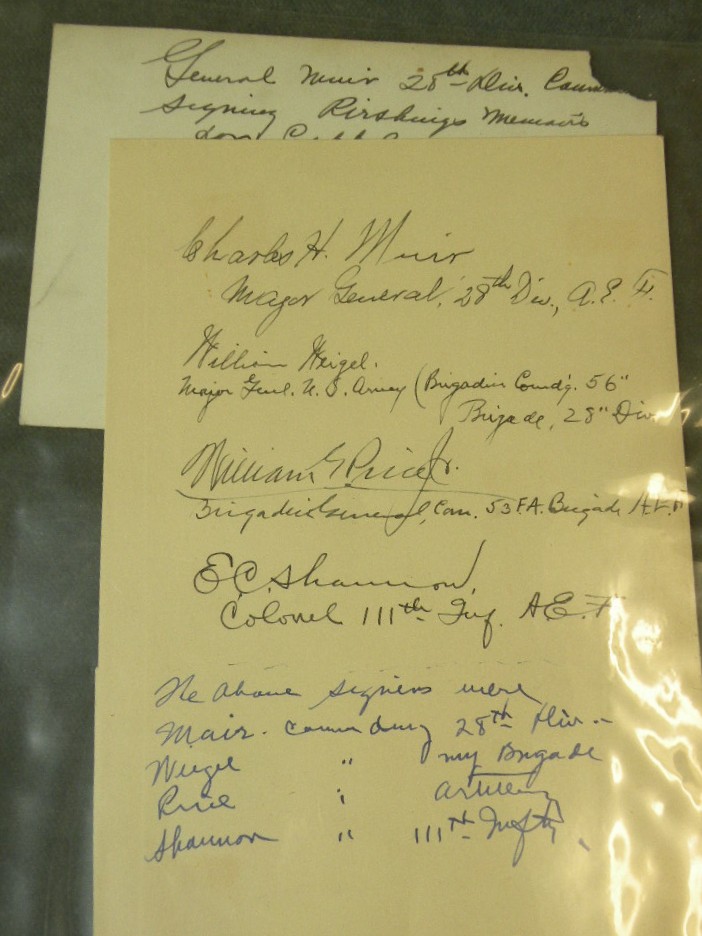 General Muir 28th Div.
signing Pirshings Memoirs
Charles H. Muir
Major General, 28th Div., A.E.F.
William Weigel.
Major Genl. U.S. Army (Brigadier Comd'g. 56"
Brigade, 28" Div.
William G Price Jr.
Brigadier General, Com. 53 F.A. Brigade A.E.F.
E.C. Shannon,
Colonel 111th Inf. A.E.F.
The above signers were
Muir - commanding 28th Div -
Weigel " my Brigade
Price " Artillery
Shannon " 111th Infty